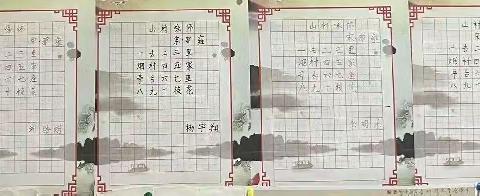 咏怀
宋 邵雍
二三里
四五家
六七座
十枝花
山村咏怀
宋 邵雍
一去二三里
烟村四五家
亭台六七座
八九十枝花
杨宇翔
山村咏怀
宋 邵雍
一去二三里
烟村四五家
亭台六七座
八九十枝花
山村
一去二
烟村四
亭台六
八九十